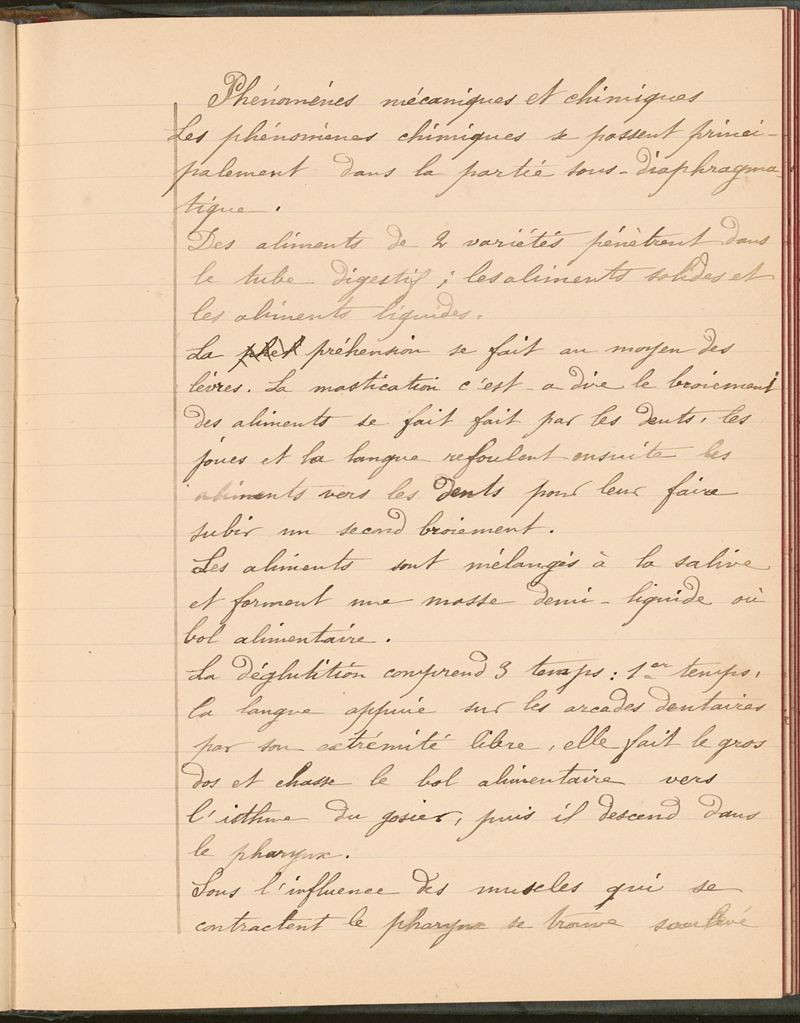 Phénomènes mécaniques et chimiques
Les phénomènes chimiques se passent princi-
palement dans la partie sous-diaphragma-
tique.
Des aliments de 2 variétés pénètrent dans
le tube digestif ; les aliments solides et
les aliments liquides.
La préhension se fait au moyen des
lèvres. La mastication c'est-a dire le broiement
des aliments se fait fait par les dents, les
joues et la langue refoulent ensuite les
aliments vers les dents pour leur faire
subir un second broiement.
Les aliments sont mélangés à la salive
et forment une masse demi-liquide où
bol alimentaire.
La déglutition comprend 3 temps : 1er temps,
la langue appuie sur les arcades dentaires
par son extrémité libre, elle fait le gros
dos et chasse le bol alimentaire vers
l'isthme du gosier, puis il descend dans
le pharynx.
Sous l'influence des muscles qui se
contractent le pharynx se trouve soulevé